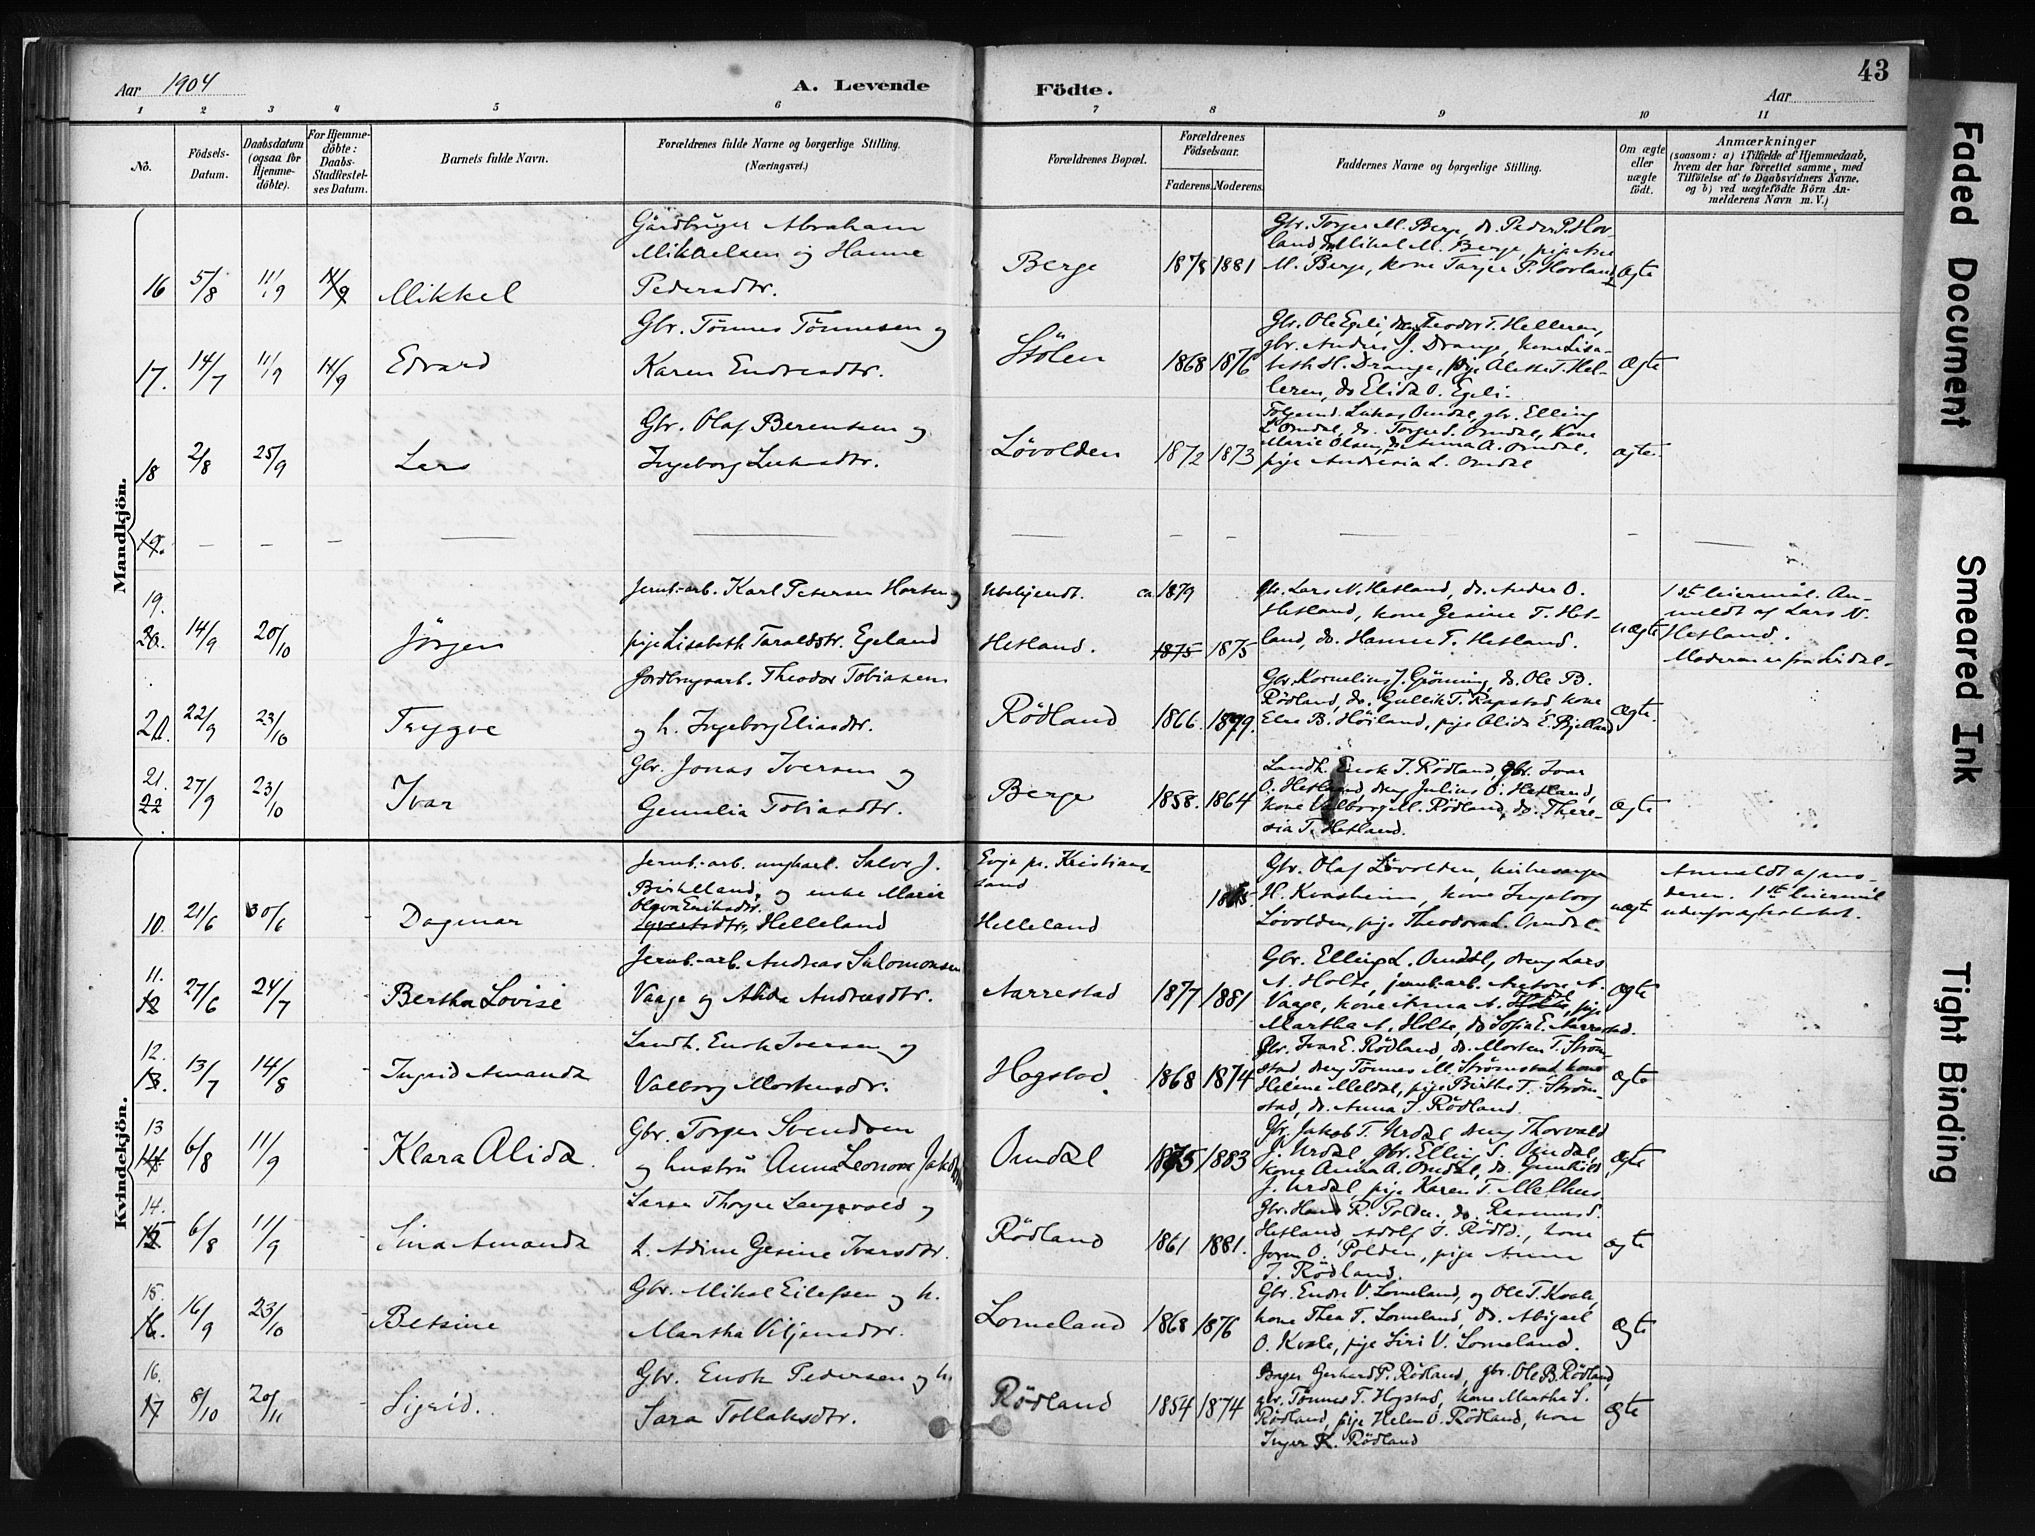 Aar 1904
A. Levende
Födte.
Aar
43
1 2 3 4 5 6 7 8 9 10 11
No.
Födsels-Datum.
Daabsdatum (ogsaa for Hjemmedöbte).
For Hjemmedöbte: Daabs-Stadfæstelses Datum.
Barnets fulde Navn.
Forældrenes fulde Navne og borgerlige Stilling.
(Næringsvei.)
Forældrenes Bopæl.
Forældrenes Födselsaar.
Faderens. Moderens.
Faddernes Navne og borgerlige Stilling.
Om ægte eller uægte födt.
Anmærkninger
(saasom: a) i Tilfælde af Hjemmedaab, hvem der har forrettet samme, med Tilföielse af to Daabsvidners Navne, og b) ved uægtefödte Börn Anmelderens Navn m. V.)
Mandkjön.
16 5/8 11/9 11/9 Mikkel
Gårdbruger Abraham
Mikaelsen og Hanne
Pedersdtr.
Berge 1878 1881
Gbr. Torger M. Berge, do. Peder P. Hovland, do Mikal M. Berge, pige Ane
M. Berge, kone Tarjer P. Hovland
ægte
17. 14/7 11/9 11/9 Edvard
Gbr. Tönnes Tönnesen og
Karen Endresdtr.
Stölen 1868 1876
Gbr. Ole Egeli, Theodor T. Helleren,
gbr. Andreas J. Drange, kone Lisabeth H. Drange, pige Alette T. Helleren, do Elida O. Egeli.
Ægte
18 2/8 25/9 Lars
Gbr. Olaf Berentsen og
Ingeborg Lukasdtr.
Lövolden 1872 1873
Lukas Omdal, gbr. Elling
L Omdal, do. Torger S. Omdal, kone
Marie Olsen, do Anna A. Omdal,
pige Andresia L. Omdal
ægte
19.
19. 20. 14/9 20/10 Jörgen
Jernb.-arb. Karl Petersen Horten og
pige Lisabeth Taraldsdtr. Egeland
Ubekjendt. ca. 1879
Hetland. 1875 1875
Gbr. Lars N. Hetland, do. Anders O.
Hetland, kone Gesine T. Hetland, do. Hanne T. Hetland.
uægte
1ste leiermål. Anmeldt af Lars N.
Hetland.
Moderen er fra Sirdal.
20. 22/9 23/10 Trygve
Jordbrugsarb. Theodor Tobiasen
og h. Ingeborg Eliasdtr.
Rödland 1866 1879.
Gbr. Kornelius J. Grönning, do. Ole B.
Rödland, do. Gullik T. Rapstad, kone
Elne B. Höiland, pige Alida E. Bjelland
Ægte.
21. 22 27/9 23/10 Ivar
Gbr. Jonas Iversen og
Gemalia Tobiasdtr.
Berge 1858. 1864
Landh. Enok T. Rödland, gbr. Ivar
O. Hetland, deng Julius O. Hetland,
kone Valborg M. Rödland, do. Theresia T. Hetland.
ægte
Kvindekjön.
10. 21/6 30/6 Dagmar
Jernb.-arb. ungkarl. Salve J.
Birkelland, og enke Marie
Olava Eriksdtr.
Helleland
Evje pr. Kristianssand
Helleland
Gbr. Olaf Lövolden, kirkesanger
H. Kvasheim, kone Ingeborg
Lövolden, pige Theodora L. Omdal
uægte
Anmeldt af moderen. 1ste leiermål
udenfor ægteskabet.
11. 12 27/6 24/7 Bertha Lovise
Jernb.-arb. Andreas Salomonsen
Vaage og Alida Andreasdtr.
Aarrestad 1877 1881
Gbr. Elling L. Omdal, deng Lars
A. Holte, jernb.-arb. Anton A.
Vaage, kone Anna A. Holte, pige
Martha A. Holte, do Sofia E. Aarrestad.
Ægte
12. 13. 13/7 14/8 Ingrid Amanda
Landh. Enok Iversen og
Valborg Mortensdtr.
Hogstad 1868 1874
Gbr. Ivar E. Rödland, do. Morten T. Strömstad, deng Tönnes M. Strömstad, kone
Helene Meldal, pige Birthe T. Strömstad, do. Anna J. Rödland.
Ægte
13 14 6/8 11/9 Klara Alida.
Gbr. Torger Svendsen
og hustru Anna Leonore Jakobsdtr
Omdal 1875 1883
Gbr. Jakob T. Urdal, deng Thorvald
J. Urdal, gbr. Elling S. Omdal,
kone Anna A. Omdal, do. Gunhild
J. Urdal, pige Karen T. Melhus.
Ægte
14. 15 6/8 11/9 Sina Amanda
Lærer Thorger Langevald og
h. Adine Gesine Ivarsdtr.
Rödland 1861 1881.
Gbr. Hans R. Polden, do. Rasmus S.
Hetland, Adolf I. Rödld., kone
Joren O. Polden, pige Anna
I. Rödland.
ægte
15. 16. 16/9 23/10 Betsine
Gbr. Mikal Eilefsen og h.
Martha Viljamsdtr.
Lomeland 1868 1876
Gbr. Endre V. Lomeland, og Ole T. Kvale,
kone Thea T. Lomeland, do. Abigael
O. Kvale, pige Siri V. Lomeland.
Ægte
16. 17 8/10 20/11 Sigrid.
Gbr. Enok Pedersen og h.
Sara Tollaksdtr.
Rödland 1854 1874
Bager Gerhard P. Rödland, gbr. Ole B. Rödland,
gbr. Tönnes T. Hogstad, kone Martha S.
Rödland, pige Helen O. Rödland, kone
Inger K. Rödland
Ægte
Faded Document
Smeared Ink
Tight Binding